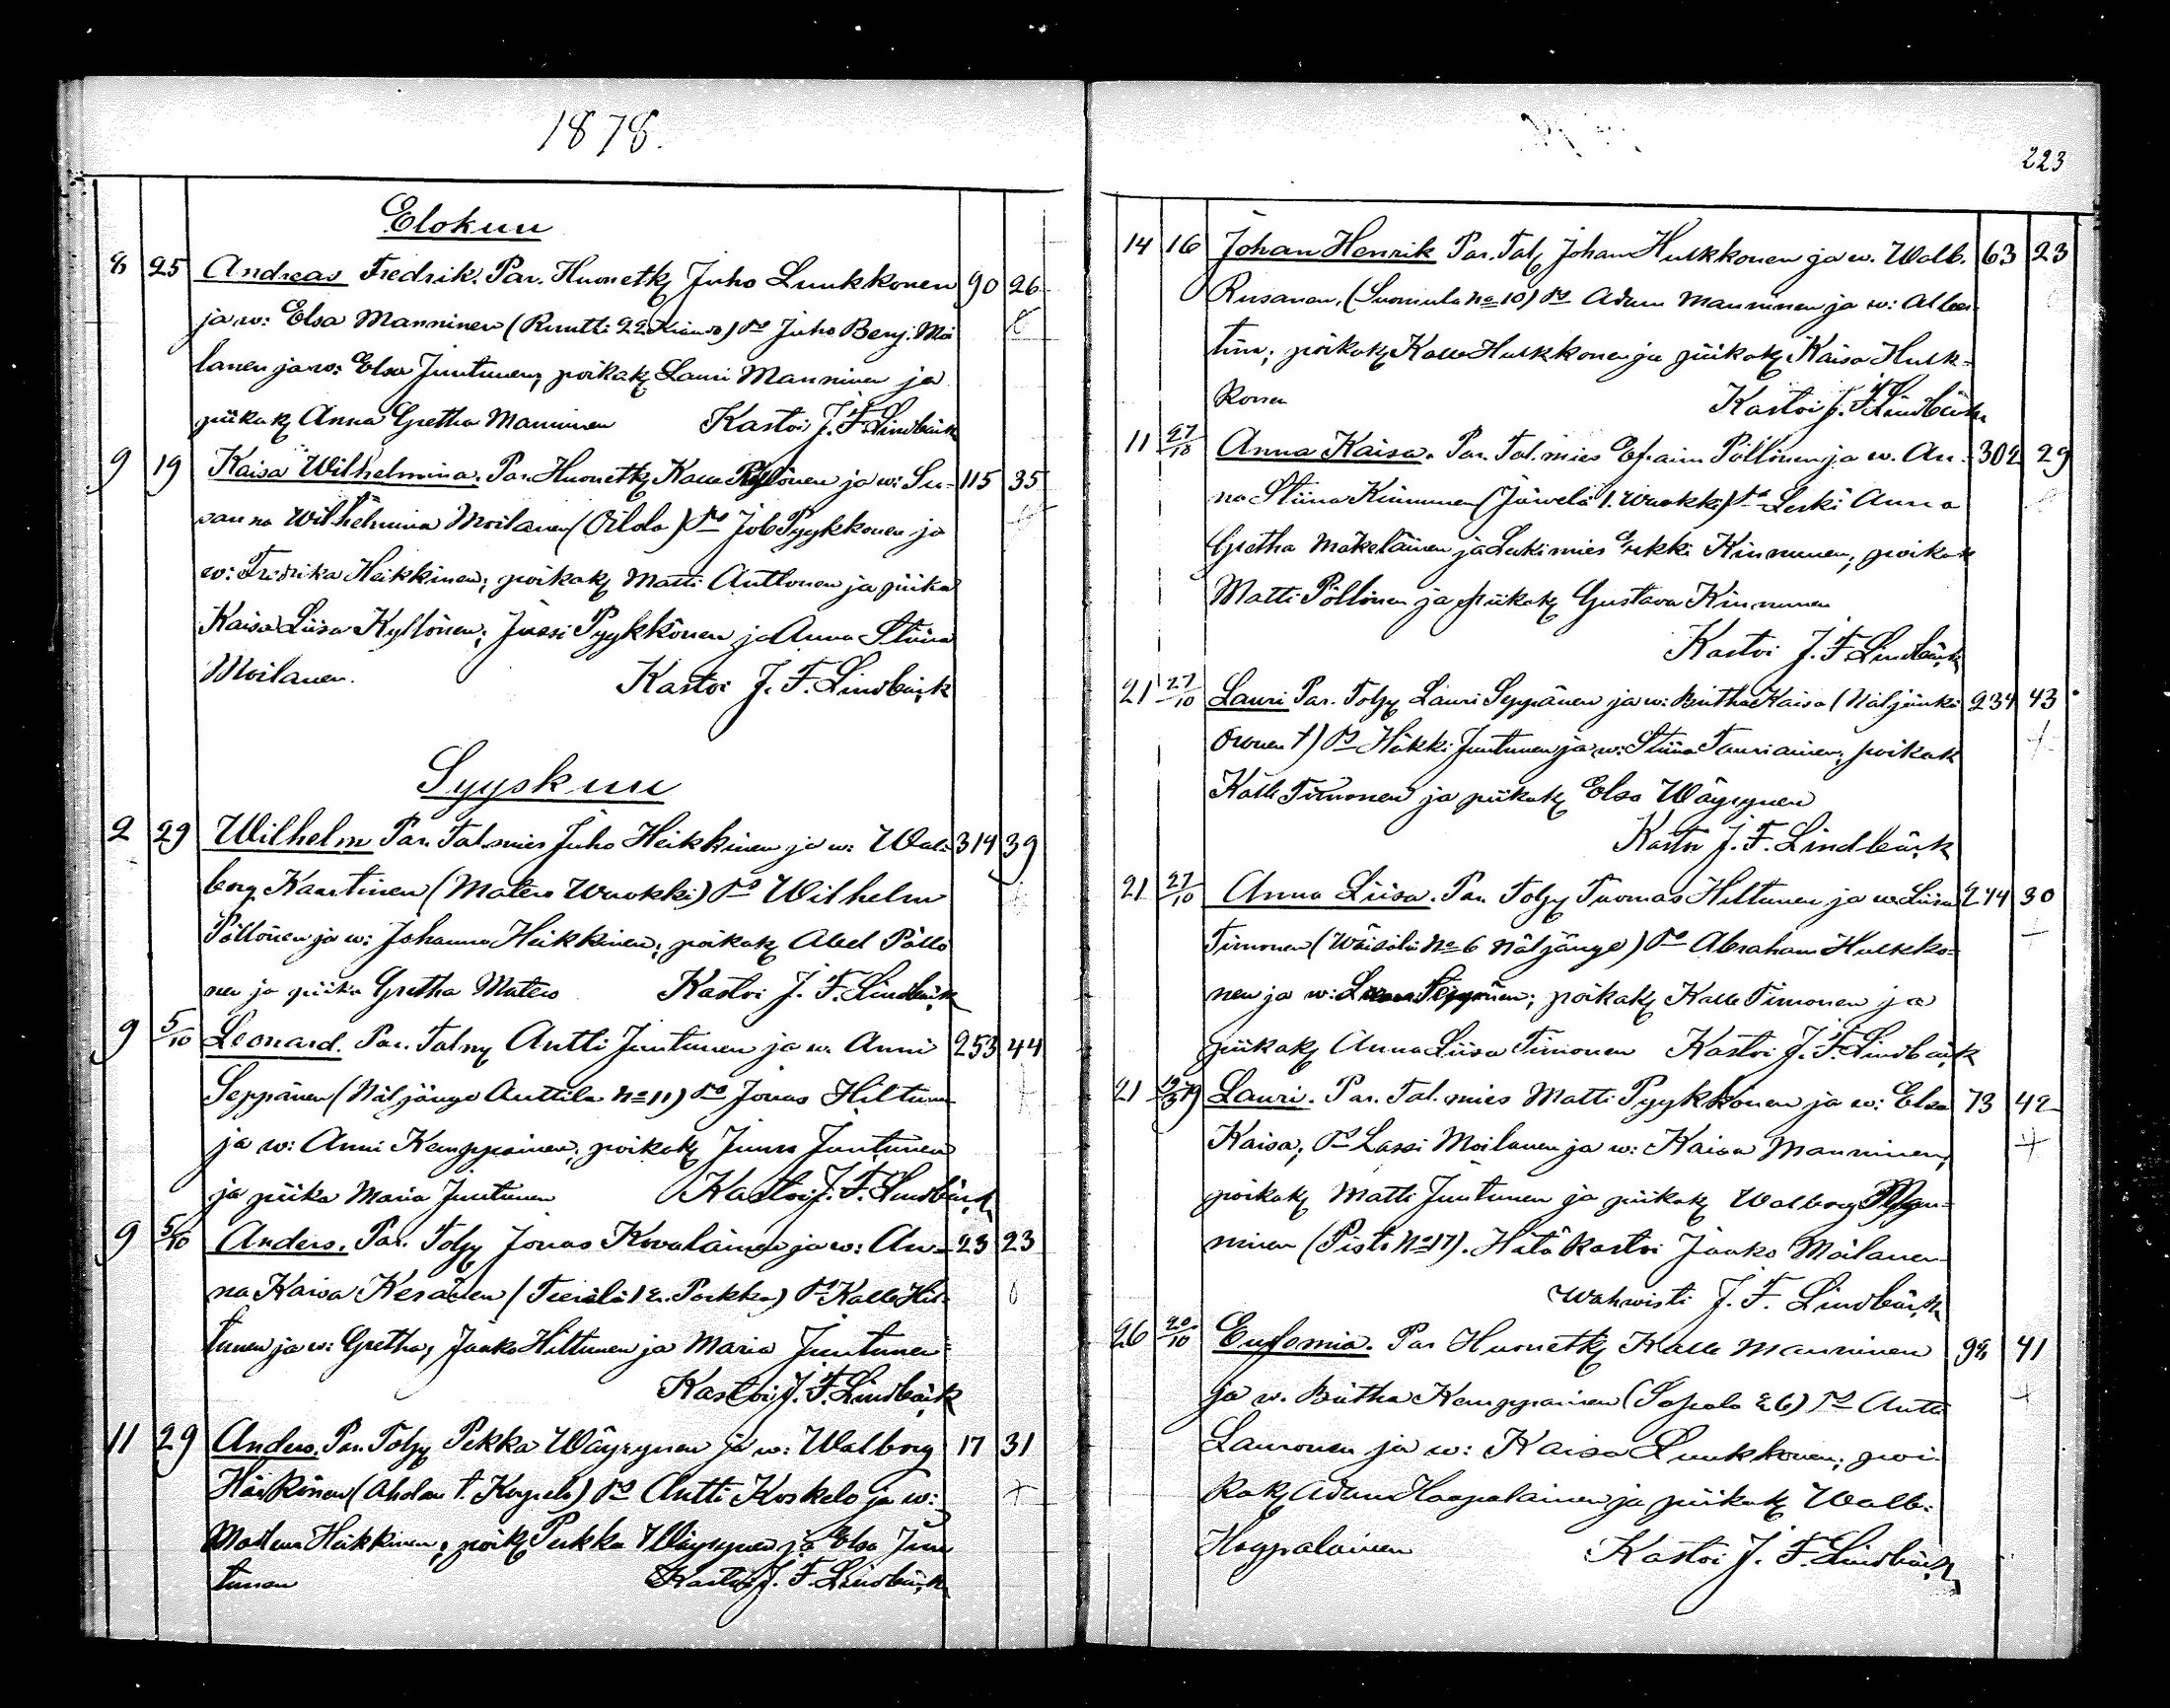 1878.
Elokuu
8 25 Andreas Fredrik. Par. Huonetk Juho Luukkonen 90 26
ja w: Elsa Manninen (Ruutti 22 Kianto) Juho Benj. Moi
lanen ja w: Elsa Juntunen, poikak Lauri Manninen ja
piikak Anna Gretha Manninen Kastoi J. F. Lindbäck
9 19 Kaisa Wilhelmina. Par. Huonetk Kalle Kyllönen ja w: Su- 115 35
sanna Wilhelmina Moilanen (Oilola) Job Pyykkonen ja
w: Fredrika Heikkinen; poikak Matti Anttonen ja piika
Kaisa Liisa Kyllönen; Jussi Pyykkönen ja Anna Stiina
Moilanen. Kastoi J. F. Lindbäck
Syyskuu
2 29 Wilhelm Par. Tal.mies Juho Heikkinen ja w: Wal- 314 39
borg Kaartinen (Matero Wuokki) Wilhelm
Pöllönen ja w: Johanna Heikkinen; poikak Abel Pöllö
nen ja piika Gretha Matero Kastoi J. F. Lindbäck
9 5/10 Leonard. Par. Talm Antti Juntunen ja w. Anni 253 44
Seppänen (Näljänge Anttila No 11) Jonas Hiltunen
ja w: Anni Kemppainen; poikak Junno Juntunen
ja piika Maria Juntunen Kastoi J. F. Lindbäck
9 5/10 Anders. Par. Tolp Jonas Kovalainen ja w: An- 23 23
na Kaisa Keränen (Tierälä) Kalle Hil-
tunen ja w: Gretha; Jaako Hiltunen ja Maria Juntunen
Kastoi J. F. Lindbäck
11 29 Anders. Par. Tolp Pekka Wäyrynen ja w: Walborg 17 31
Härkönen (Aholan t.) Antti Koskelo ja w:
Heikkinen; poik Pekka Wäyrynen ja Elsa Jun
tunen Kastoi J. F. Lindbäck
223
14 16 Johan Henrik Par. Tal Johan Hulkkonen ja w. Walb. 63 23
Rusanen, (Suomula No 10) Adam Manninen ja w: Alber
tina; poikak Kalle Hulkkonen ja piikak Kaisa Hulk-
konen Kastoi J. F. Lindbäck
11 27/10 Anna Kaisa. Par. Tal.mies Efraim Pöllönen ja w. An- 302 29
na Stiina Kinnunen (Järvelä 1. Wuokki) Leski Anna
Gretha Mäkeläinen ja Leskimies Erkki Kinnunen; poikak
Matti Pöllönen ja piikak Gustava Kinnunen
Kastoi J. F. Lindbäck
21 27/10 Lauri Par. Tolp Lauri Seppänen ja w: Britha Kaisa (Näljänkä 234 43
Heikki Juntunen ja w: Stiina Tauriainen; poikak
Kalle Timonen ja piikak Elsa Wäyrynen
Kastoi J. F. Lindbäck
21 27/10 Anna Liisa. Par. Tolp Tuomas Hiltunen ja w. Liisa 244 30
Timonen (Wäisälä No 6 Näljänge) Abraham Hulkko-
nen ja w: Seppänen; poikak Kalle Timonen ja
piikak Anna Liisa Timonen Kastoi J. F. Lindbäck
21 Lauri. Par. Tal.mies Matti Pyykkönen ja w: Elsa 73 42
Kaisa; Lassi Moilanen ja w: Kaisa Manninen;
poikak Matti Juntunen ja piikak Walborg Man-
ninen (Pisto No 17). Hätä kastoi Jaako Moilanen
wahwisti J. F. Lindbäck
26 20/10 Eufemia. Par Huonetk Kalle Manninen 98 41
ja w. Britha Kemppainen (Sapola 26) Antti
Lauronen ja w: Kaisa Luukkonen; poi-
kak Adam Haapalainen ja piikak Walb:
Haapalainen Kastoi J. F. Lindbäck